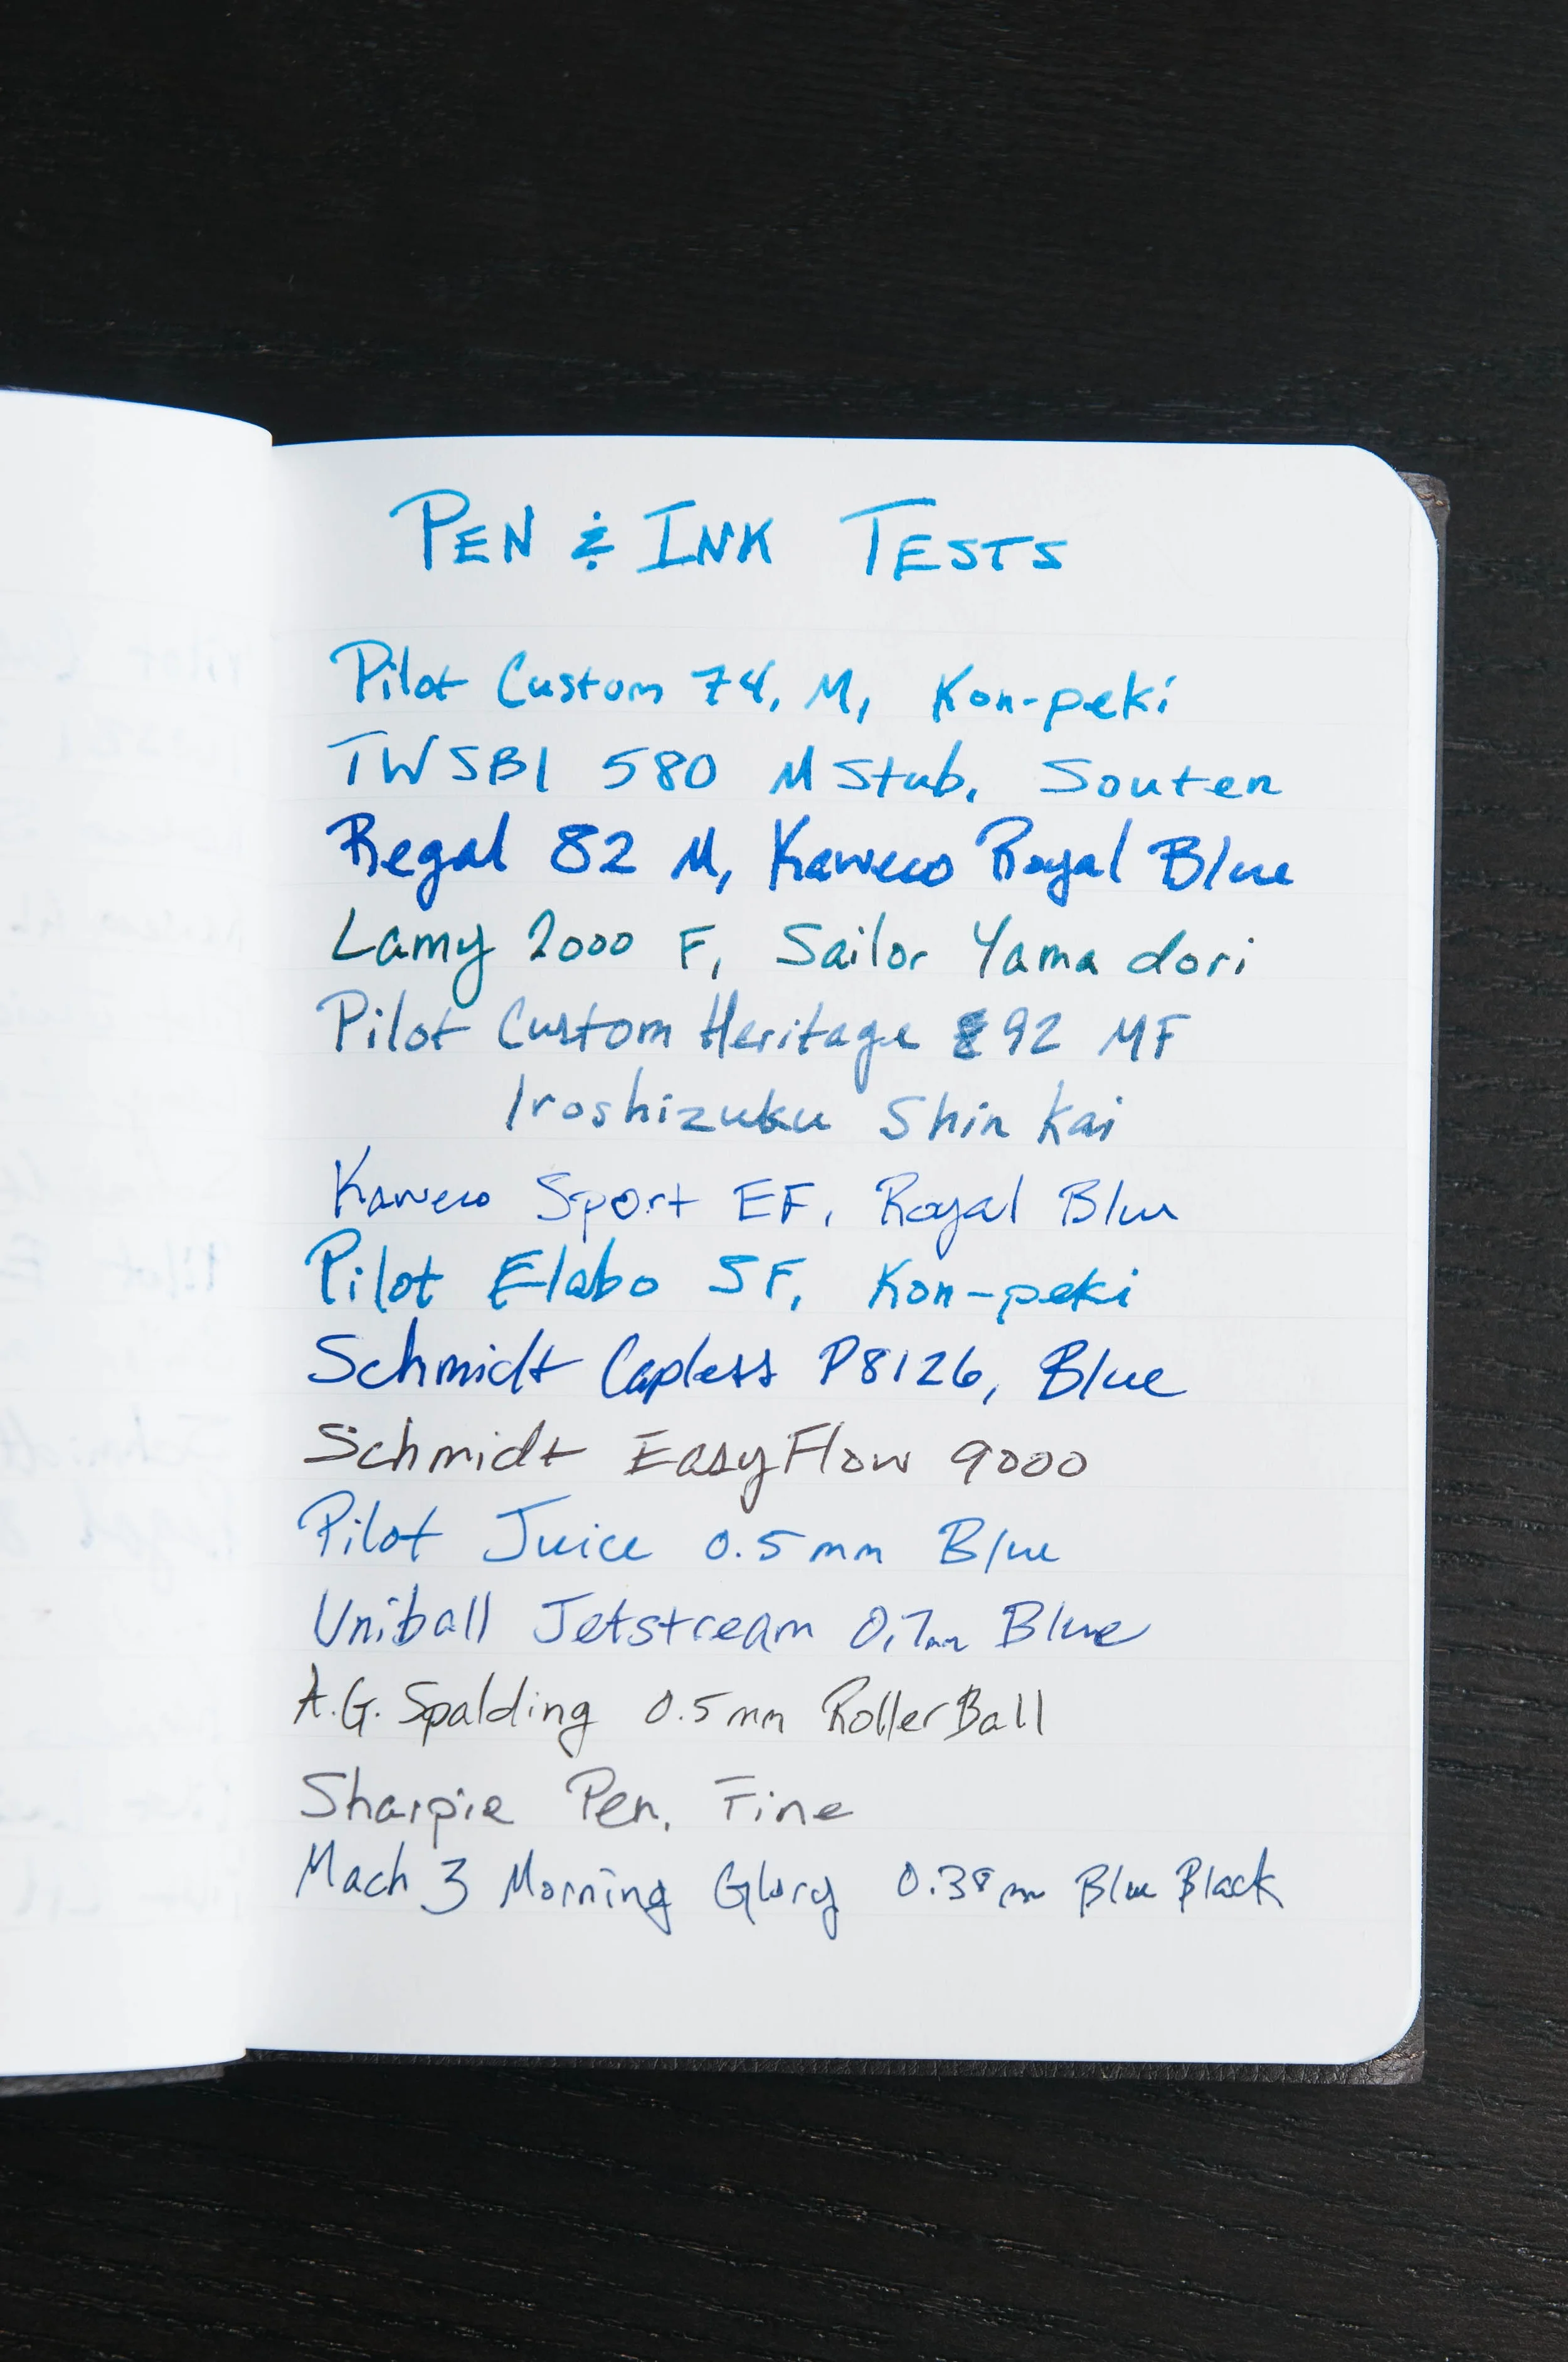 PEN & INK TESTS
Pilot Custom 74, M, Kon-peki
TWSBI 580 M Stub, Souten
Regal 82 M, Kaweco Royal Blue
Lamy 2000 F, Sailor Yama dori
Pilot Custom Heritage 92 MF
Iroshizuku Shin Kai
Kaweco Sport EF, Royal Blue
Pilot Elabo SF, Kon-peki
Schmidt Capless P8126, Blue
Schmidt EasyFlow 9000
Pilot Juice 0.5mm Blue
Uniball Jetstream 0.7mm Blue
A.G. Spalding 0.5mm RollerBall
Sharpie Pen, Fine
Mach 3 Morning Glory 0.38mm Blue Black